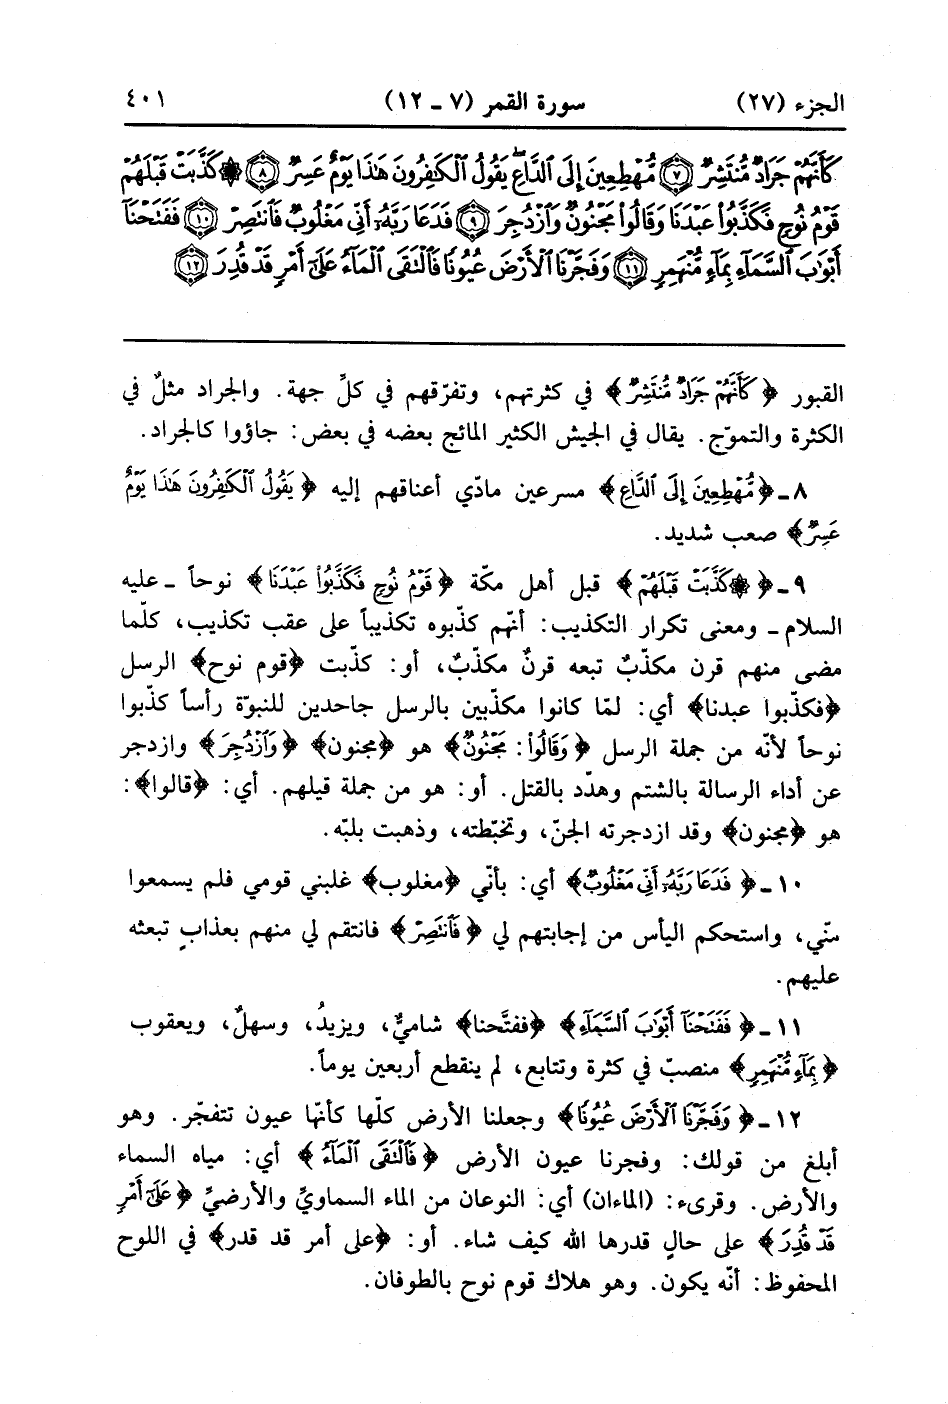 الجزء (٢٧) سورة القمر (٧ ـ ١٢) ٤٠١
كَأَنَّهُمْ جَرَادٌ مُّنتَشِرٌ ﴿٧﴾ مُّهْطِعِينَ إِلَى ٱلدَّاعِ يَقُولُ ٱلْكَٰفِرُونَ هَٰذَا يَوْمٌ عَسِرٌ ﴿٨﴾ ۞ كَذَّبَتْ قَبْلَهُمْ
قَوْمُ نُوحٍ فَكَذَّبُوا۟ عَبْدَنَا وَقَالُوا۟ مَجْنُونٌ وَٱزْدُجِرَ ﴿٩﴾ فَدَعَا رَبَّهُۥٓ أَنِّى مَغْلُوبٌ فَٱنتَصِرْ ﴿١٠﴾ فَفَتَحْنَآ
أَبْوَٰبَ ٱلسَّمَآءِ بِمَآءٍ مُّنْهَمِرٍ ﴿١١﴾ وَفَجَّرْنَا ٱلْأَرْضَ عُيُونًا فَٱلْتَقَى ٱلْمَآءُ عَلَىٰٓ أَمْرٍ قَدْ قُدِرَ ﴿١٢﴾
القبور ﴿كَأَنَّهُمْ جَرَادٌ مُّنتَشِرٌ﴾ في كثرتهم، وتفرّقهم في كلِّ جهة. والجراد مثلٌ في
الكثرة والتموّج. يقال في الجيش الكثير المائج بعضه في بعض: جاؤوا كالجراد.
٨ ـ ﴿مُّهْطِعِينَ إِلَى ٱلدَّاعِ﴾ مسرعين مادّي أعناقهم إليه ﴿يَقُولُ ٱلْكَٰفِرُونَ هَٰذَا يَوْمٌ
عَسِرٌ﴾ صعب شديد.
٩ ـ ﴿۞ كَذَّبَتْ قَبْلَهُمْ﴾ قبل أهل مكّة ﴿قَوْمُ نُوحٍ فَكَذَّبُوا۟ عَبْدَنَا﴾ نوحاً ـ عليه
السلام ـ ومعنى تكرار التكذيب: أنّهم كذّبوه تكذيباً على عقب تكذيب، كلّما
مضى منهم قرن مكذّبٌ تبعه قرنٌ مكذّبٌ، أو: كذّبت ﴿قوم نوح﴾ الرسل
﴿فكذّبوا عبدنا﴾ أي: لمّا كانوا مكذّبين بالرسل جاحدين للنبوّة رأساً كذّبوا
نوحاً لأنّه من جملة الرسل ﴿وَقَالُوا۟: مَجْنُونٌ﴾ هو ﴿مجنون﴾ ﴿وَٱزْدُجِرَ﴾ وازدجر
عن أداء الرسالة بالشتم وهدّد بالقتل. أو: هو من جملة قيلهم. أي: ﴿قالوا﴾:
هو ﴿مجنون﴾ وقد ازدجرته الجنّ، وتخبّطته، وذهبت بلبّه.
١٠ ـ ﴿فَدَعَا رَبَّهُۥٓ أَنِّى مَغْلُوبٌ﴾ أي: بأنّي ﴿مغلوب﴾ غلبني قومي فلم يسمعوا
منّي، واستحكم اليأس من إجابتهم لي ﴿فَٱنتَصِرْ﴾ فانتقم لي منهم بعذابٍ تبعثه
عليهم.
١١ ـ ﴿فَفَتَحْنَآ أَبْوَٰبَ ٱلسَّمَآءِ﴾ ﴿ففتَّحنا﴾ شاميٌّ، ويزيدُ، وسهلٌ، ويعقوب
﴿بِمَآءٍ مُّنْهَمِرٍ﴾ منصبّ في كثرة وتتابع، لم ينقطع أربعين يوماً.
١٢ ـ ﴿وَفَجَّرْنَا ٱلْأَرْضَ عُيُونًا﴾ وجعلنا الأرض كلّها كأنّها عيون تتفجّر. وهو
أبلغ من قولك: وفجرنا عيون الأرض ﴿فَٱلْتَقَى ٱلْمَآءُ﴾ أي: مياه السماء
والأرض. وقرىء: (الماءان) أي: النوعان من الماء السماويِّ والأرضيِّ ﴿عَلَىٰٓ أَمْرٍ
قَدْ قُدِرَ﴾ على حالٍ قدرها الله كيف شاء. أو: ﴿على أمر قد قدر﴾ في اللوح
المحفوظ: أنّه يكون. وهو هلاك قوم نوح بالطوفان.